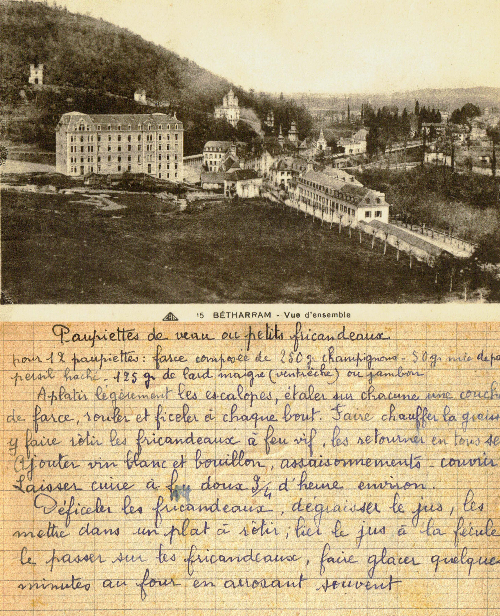 15 BÉTHARRAM - Vue d'ensemble
Paupiettes de veau ou petits fricandeaux
pour 12 paupiettes: farce composée de 250 g champignons - 50 grs mie de pa
persil haché - 125 gr de lard maigre (ventrèche) ou jambon
Aplatir légèrement les escalopes, étaler sur chacune une couch
de farce, rouler et ficeler à chaque bout. Faire chauffer la graiss
y faire rôtir les fricandeaux à feu vif, les retourner en tous se
Ajouter vin blanc et bouillon, assaisonnements - couvrir
Laisser cuire à feu doux 3/4 d'heure environ.
Déficeler les fricandeaux, dégraisser le jus, les
mettre dans un plat à rôtir, lier le jus à la fécule
le passer sur les fricandeaux, faire glacer quelque
minutes au four en arrosant souvent